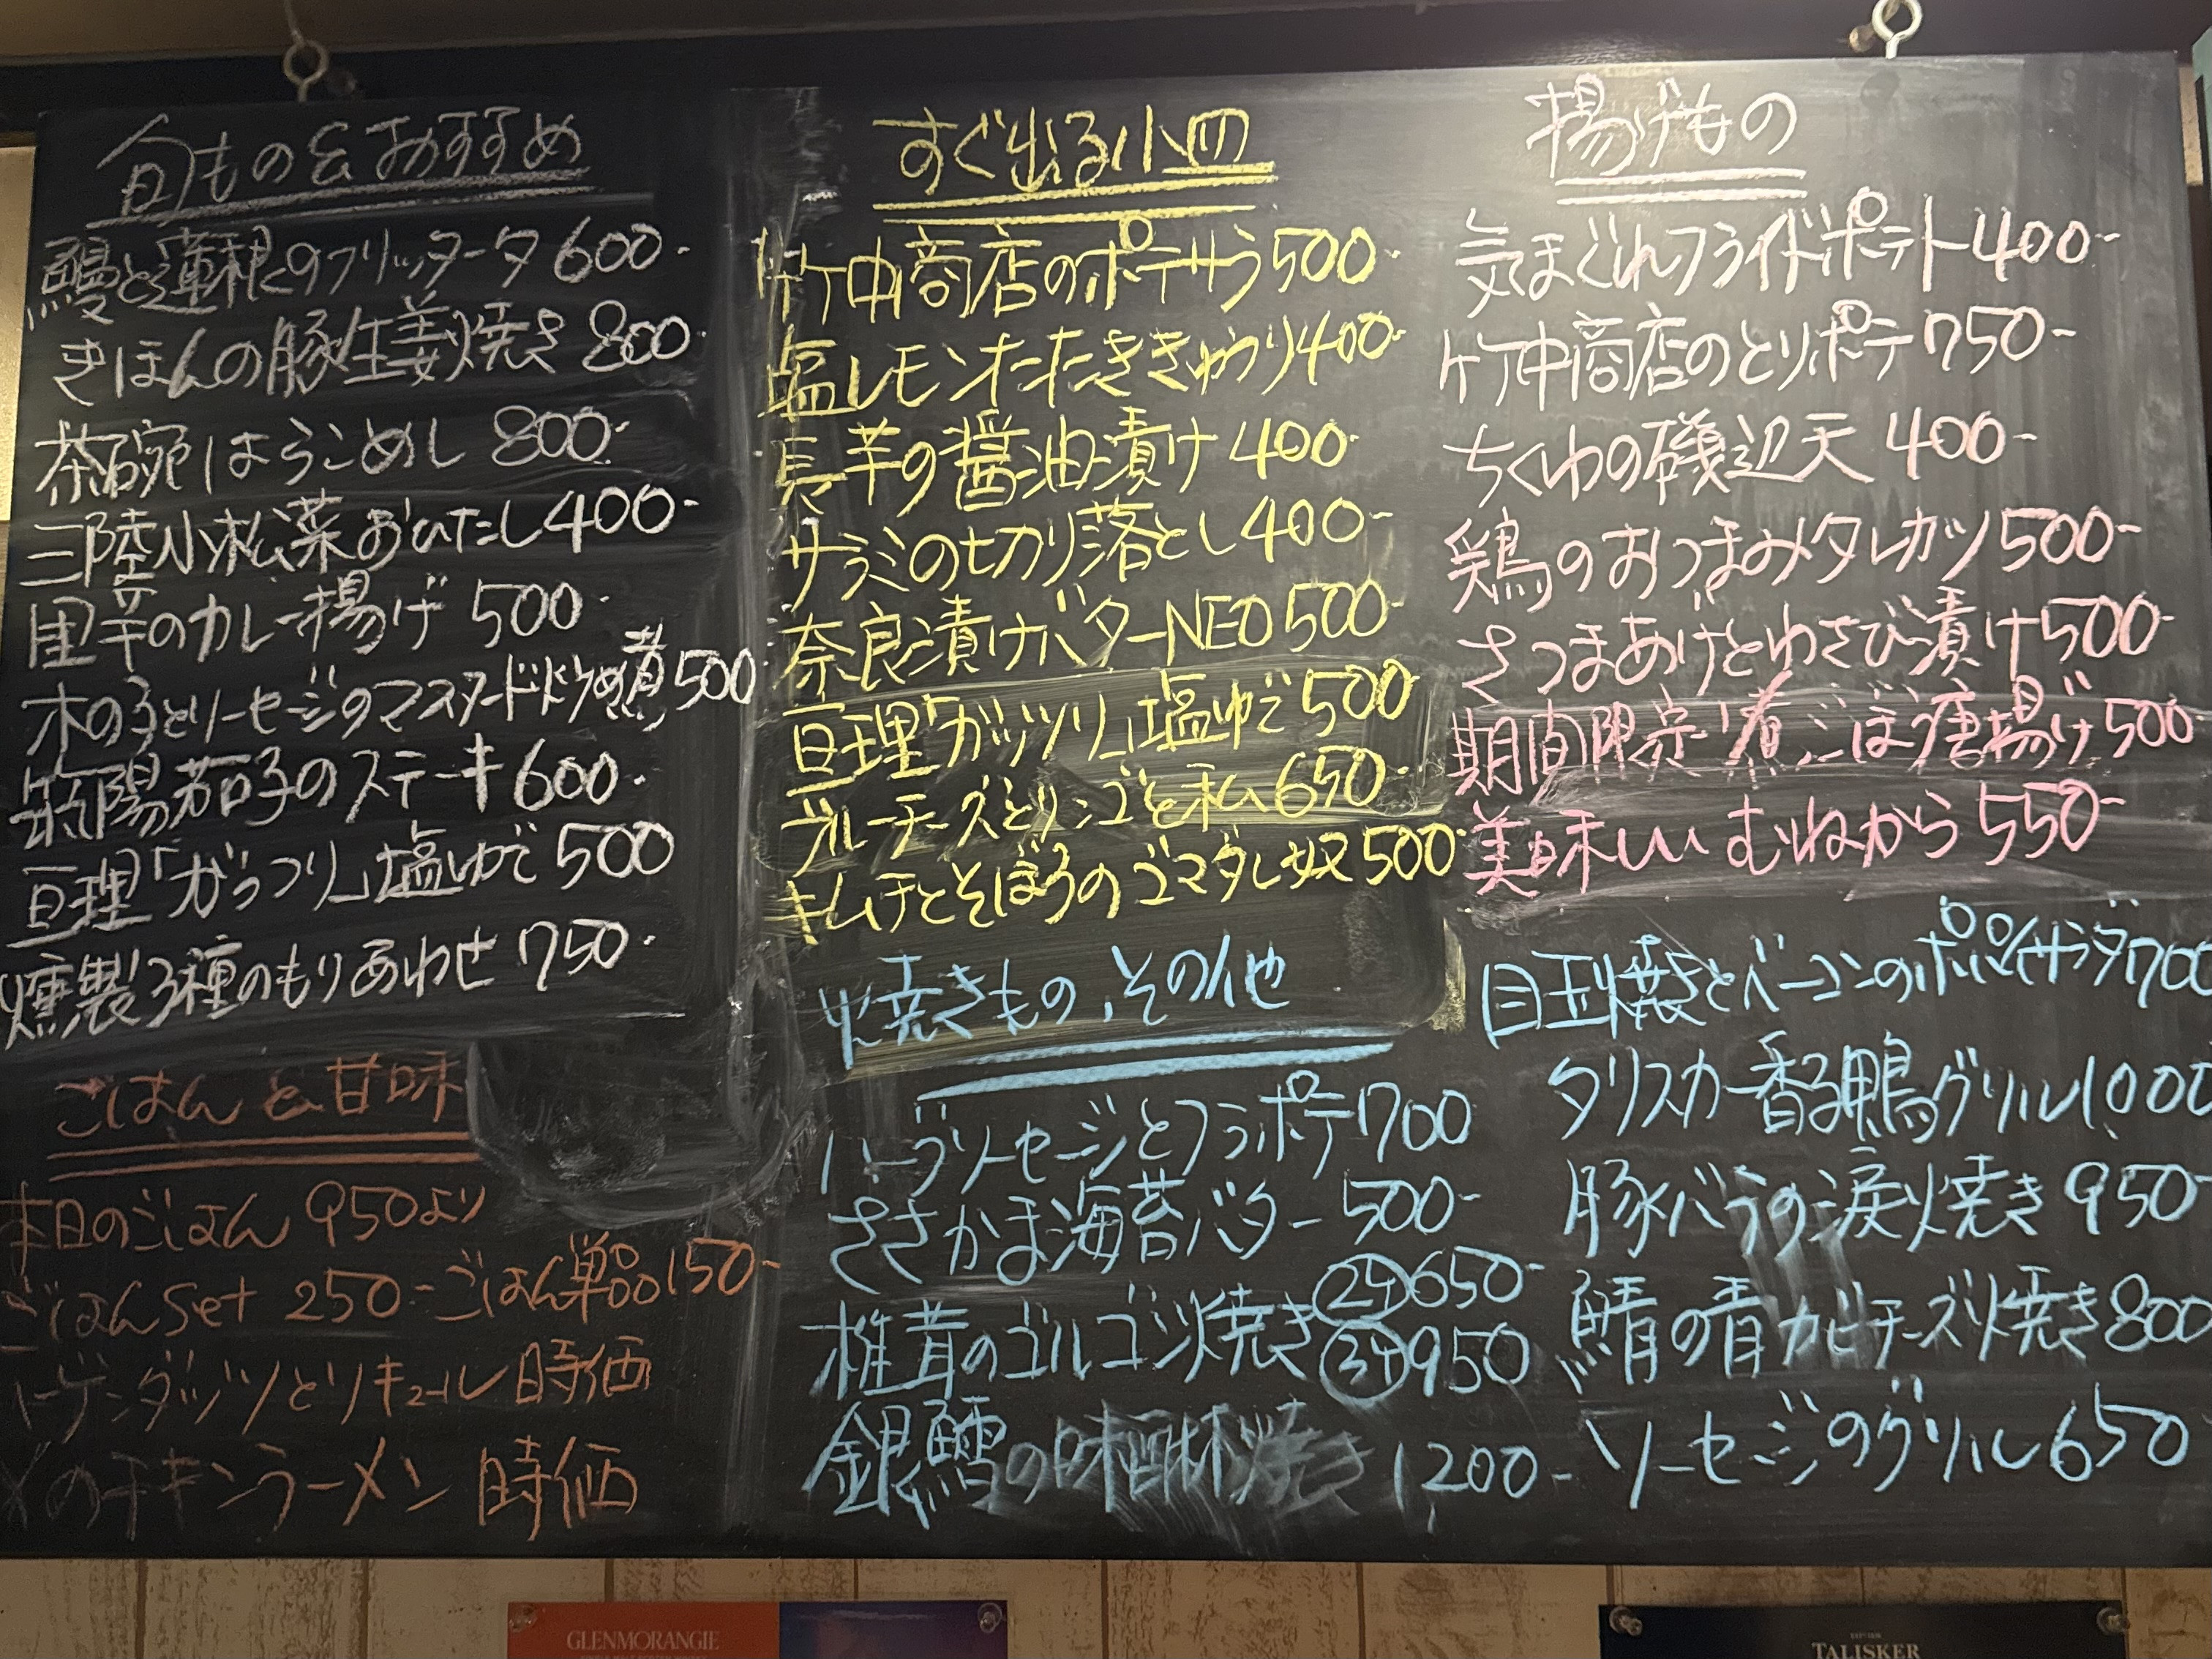 旬もの&おすすめ
鰻と蓮根のフリッタータ 600-
きほんの豚生姜焼き 800-
茶碗はらこめし 800-
三陸小松菜おひたし 400-
里芋のカレー揚げ 500-
木の子とソーセージのマスタード炒め煮 500
陽茄子のステーキ 600-
亘理「がっつり」塩ゆで 500
燻製3種のもりあわせ 750-
ごはんと甘味
本日のごはん 950より
ごはんset 250- ごはん単品 150-
ハーゲンダッツとリキュール 時価
〆のチキンラーメン 時価
すぐ出る小皿
竹中商店のポテサラ 500-
塩レモンたたききゅうり 400-
長芋の醤油漬け 400-
サラミの切り落とし 400-
奈良漬けバターNEO 500-
亘理「ガッツリ」塩ゆで 500
ブルーチーズとリンゴと私 650-
キムチとそぼろのゴマダレ奴 500-
焼きもの、その他
ハーブソーセージとフラポテ 700
ささかま海苔バター 500-
椎茸のゴルゴンゾ焼き ②ケ 650-
③ケ 950
銀鱈の味醂焼き 1200-
揚げもの
気まぐれフライドポテト 400-
竹中商店のとりポテ 750-
ちくわの磯辺天 400-
鶏のおつまみタレカツ 500-
さつまあげとわさび漬け 500-
期間限定 煮ごぼう唐揚げ 500-
美味しい むねから 550-
目玉焼きとベーコンのポパイサラダ 700
タリスカー香る鴨グリル 1000
豚バラの涙焼き 950-
鯖の青カビチーズ焼き 800
ソーセージのグリル 650
GLENMORANGIE
TALISKER